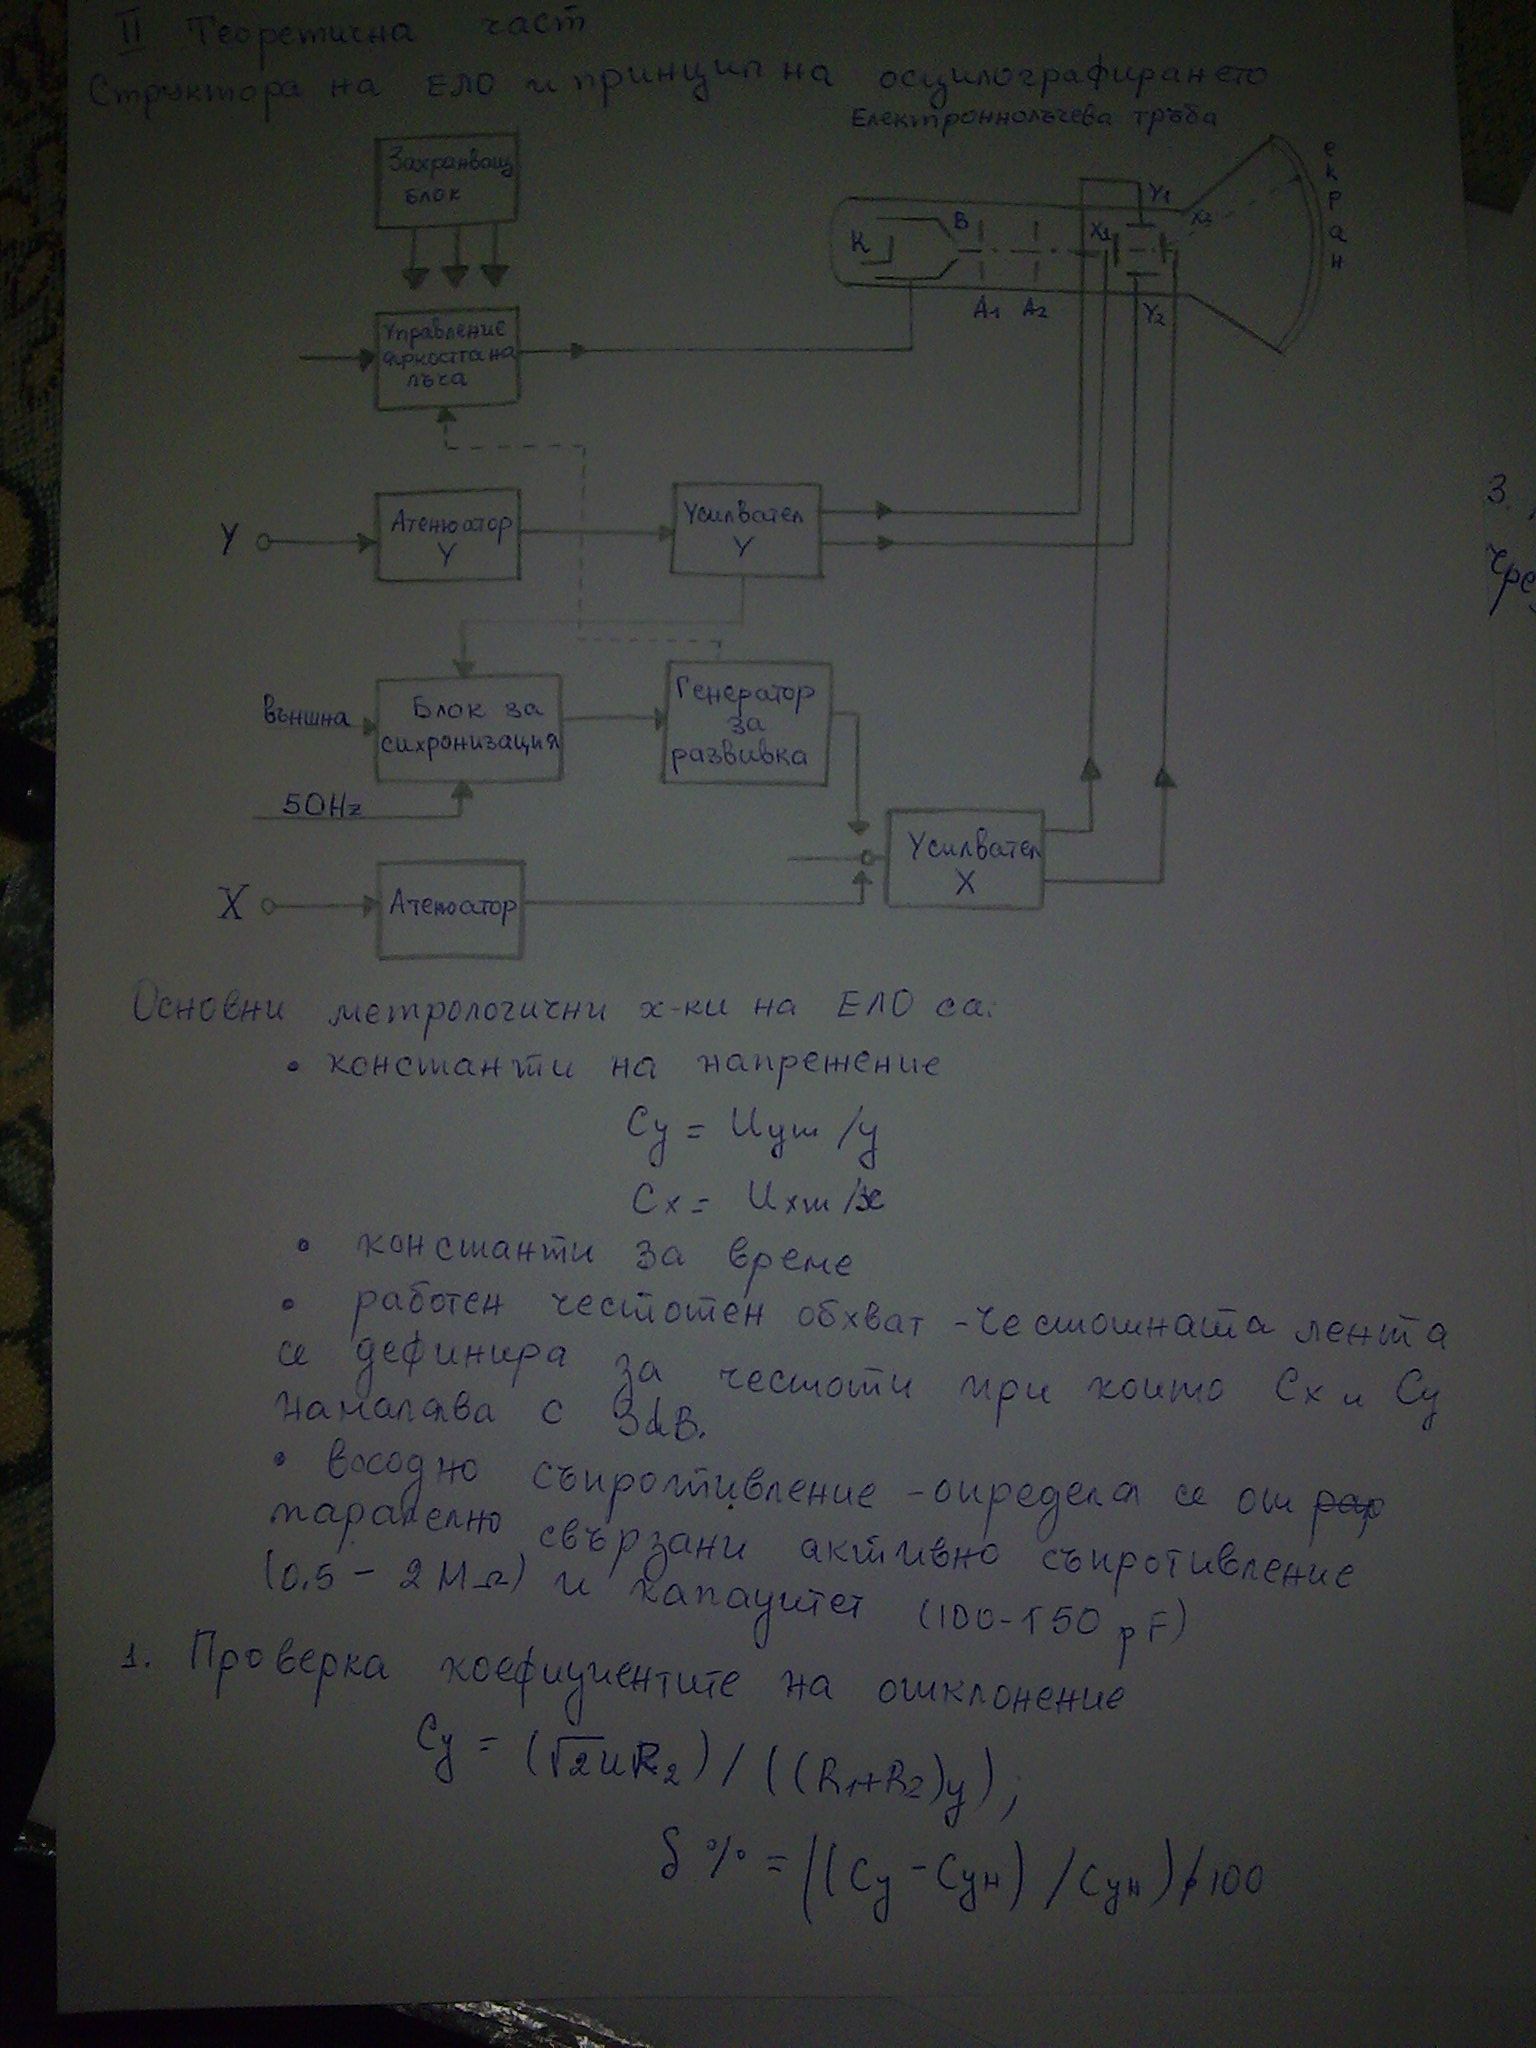 II Теоретична част
Структора на ЕЛО и принцип на осцилографирането
Електроннолъчева тръба
Захранващ
блок
екран
K
B
A1
A2
X1
Y1
X2
Y2
Управление
яркостта на
лъча
Y
Атенюатор
Y
Усилвател
Y
външна
Блок за
сихронизация
Генератор
за
развивка
50Hz
Усилвател
X
X
Атенюатор
Основни метрологични х-ки на ЕЛО са:
• константи на напрежение
Cy = Uym /y
Cx = Uxm /x
• константи за време
• работен честотен обхват - честотната лента
се дефинира за честоти при които Cx и Cy
намалява с 3dB.
• входно съпротивление - определя се от
паралелно свързани активно съпротивление
(0.5 - 2MΩ) и капацитет (100-150 pF)
1. Проверка коефициентите на отклонение
Cy = (√2UR2) / ((R1+R2)y);
δ% = ((Cy - Cyн) / Cyн) 100
3.
чре